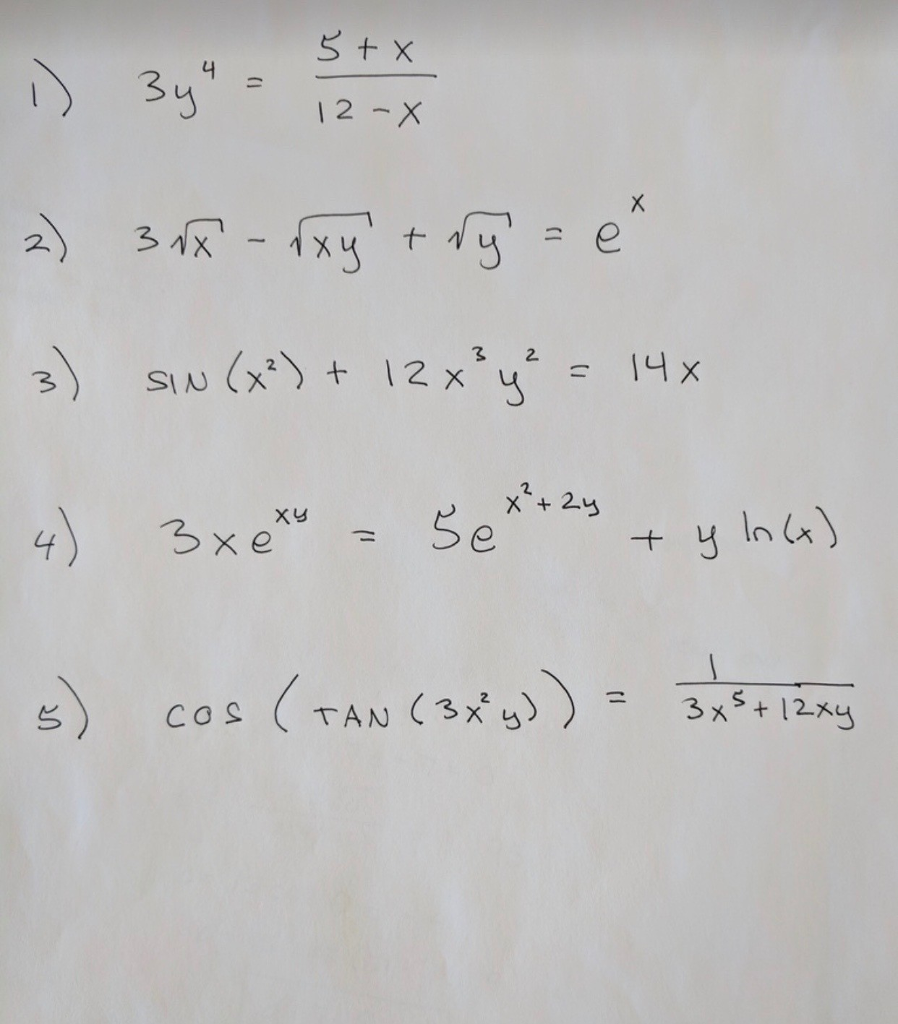 1) 3y⁴ = (5 + x)/(12 - x)
2) 3√x - √xy + √y = eˣ
3) SIN (x²) + 12x³y² = 14x
4) 3xe^(xy) = 5e^(x²+2y) + y ln(x)
5) COS (TAN (3x²y)) = 1/(3x⁵+12xy)